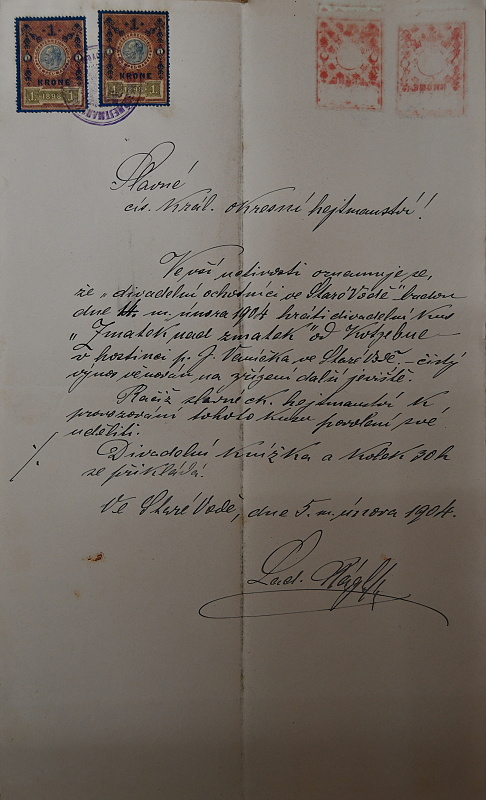 1
KRONE
1 1898 1
1
KRONE
1 1898 1
Slavné
cís. král. okresní hejtmanství!
Ve vší uctivosti oznamuje se,
že „divadelní ochotníci ve Staré Vodě" budou
dne m. února 1904 hráti divadelní kus
„Zmatek nad zmatek" od Kotzebue
v hostinci p. J. Vaníčka ve Staré Vodě. čistý
výnos věnován na zřízení další jeviště.
Račiž slavné ck. hejtmanství k
provozování tohoto kusu povolení své
uděliti.
Divadelní knížka a kolek 30h
se přikládá.
Ve Staré Vodě, dne 5. m. února 1904.
Lad.